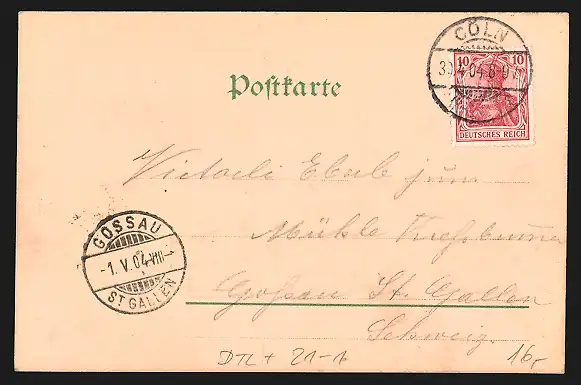 CÖLN
30.4.04.8-9V
10 10
DEUTSCHES REICH
Postkarte
Victorli Eberle zum
Mühle
GOSSAU
-1.V.04.VIII-
ST GALLEN
Gossau St. Gallen
Schweiz.
DTL + 21-1
16,-